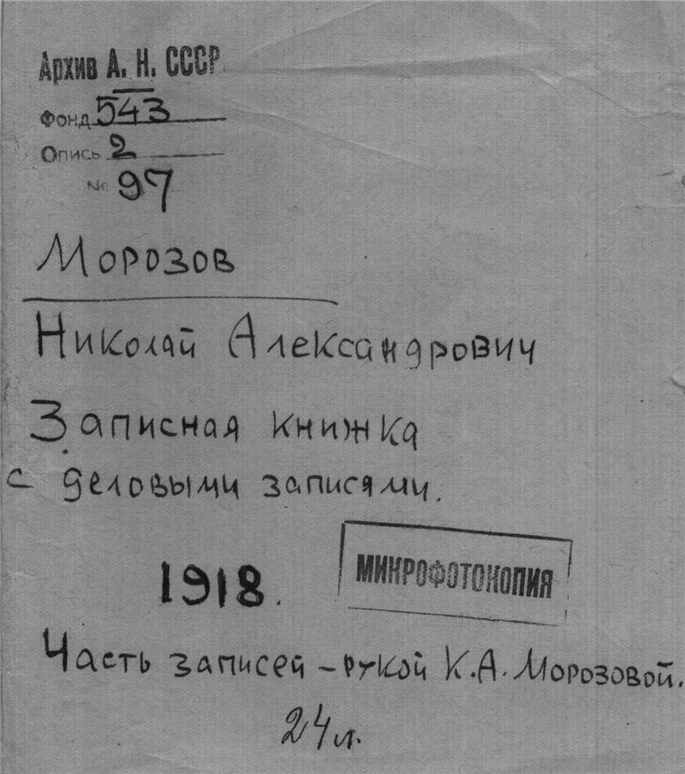 Архив А. Н. СССР
Фонд 543
Опись 2
№ 97
Морозов
Николай Александрович
Записная книжка
с деловыми записями.
1918.
МИКРОФОТОКОПИЯ
Часть записей – рукой К.А. Морозовой.
24 л.